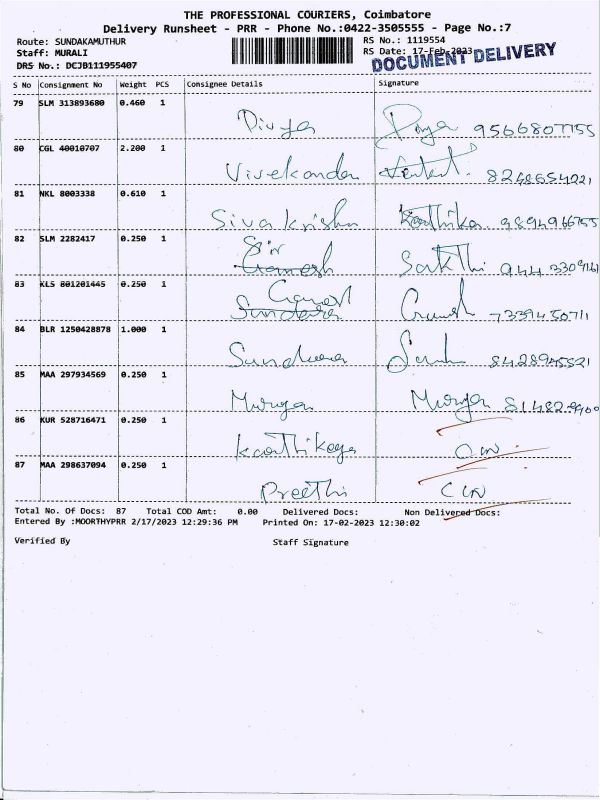 THE PROFESSIONAL COURIERS, Coimbatore
Delivery Runsheet - PRR - Phone No.:0422-3505555 - Page No.:7
Route: SUNDAKAMUTHUR RS No.: 1119554
Staff: MURALI RS Date: 17-Feb-2023
DRS No.: DCJB111955407 DOCUMENT DELIVERY
S No Consignment No Weight PCS Consignee Details Signature
79 SLM 313893680 0.460 1
Divya Divya 9566807755
80 CGL 40010707 2.200 1
Vivekanda Venkat.
81 NKL 8003338 0.610 1
Siva Krishn Karthika. 9894966755
82 SLM 2282417 0.250 1
Sir Sakthi
Ganesh
83 KLS 801201445 0.250 1
Ganesh
Sundara 7339450711
84 BLR 1250428878 1.000 1
Sundara 8428945521
85 MAA 297934569 0.250 1
Murugan Murugan
86 KUR 528716471 0.250 1
Karthikeya
87 MAA 298637094 0.250 1
Preethi
Total No. Of Docs: 87 Total COD Amt: 0.00 Delivered Docs: Non Delivered Docs:
Entered By :MOORTHYPRR 2/17/2023 12:29:36 PM Printed On: 17-02-2023 12:30:02
Verified By Staff Signature